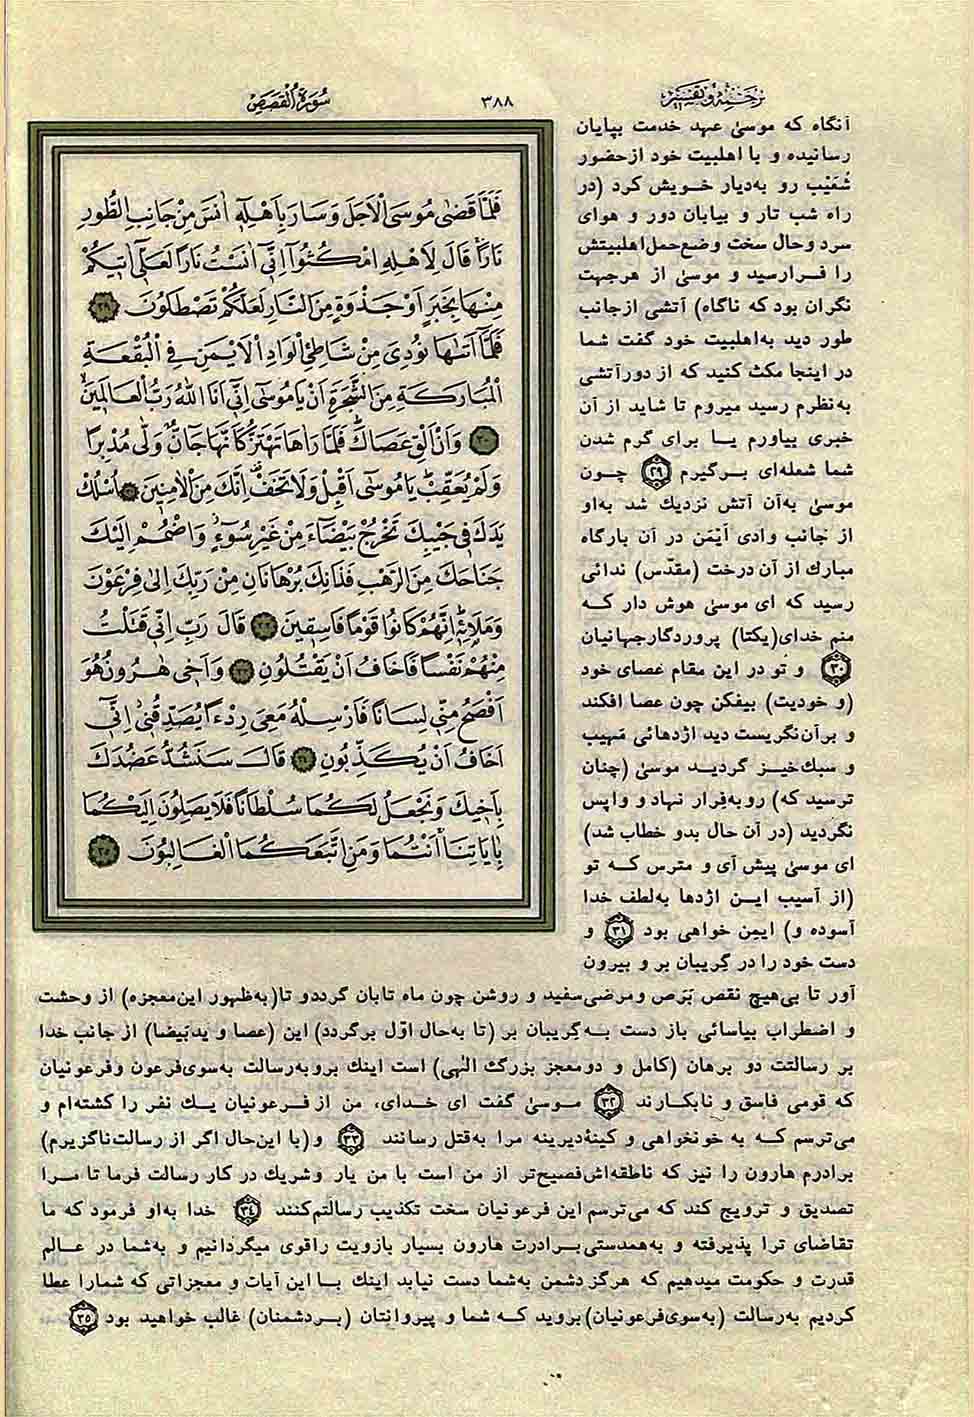 ترجمه و تفسیر
۳۸۸
سُورَةُ الْقَصَصِ
فَلَمَّا قَضٰى مُوسَى الْاَجَلَ وَسَارَ بِاَهْلِهٖٓ اٰنَسَ مِنْ جَانِبِ الطُّورِ
نَارًاۚ قَالَ لِاَهْلِهِ امْكُثُوٓا اِنّٖٓي اٰنَسْتُ نَارًا لَعَلّٖٓي اٰتٖيكُمْ
مِنْهَا بِخَبَرٍ اَوْ جَذْوَةٍ مِنَ النَّارِ لَعَلَّكُمْ تَصْطَلُونَ ۲۹
فَلَمَّٓا اَتٰيهَا نُودِيَ مِنْ شَاطِئِ الْوَادِ الْاَيْمَنِ فِي الْبُقْعَةِ
الْمُبَارَكَةِ مِنَ الشَّجَرَةِ اَنْ يَا مُوسٰٓى اِنّٖٓي اَنَا اللّٰهُ رَبُّ الْعَالَمٖينَۙ
۳۰ وَاَنْ اَلْقِ عَصَاكَۜ فَلَمَّا رَاٰهَا تَهْتَزُّ كَاَنَّهَا جَٓانٌّ وَلّٰى مُدْبِرًا
وَلَمْ يُعَقِّبْۜ يَا مُوسٰٓى اَقْبِلْ وَلَا تَخَفْ اِنَّكَ مِنَ الْاٰمِنٖينَ ۳۱ اُسْلُكْ
يَدَكَ فٖي جَيْبِكَ تَخْرُجْ بَيْضَٓاءَ مِنْ غَيْرِ سُٓوءٍۘ وَاضْمُمْ اِلَيْكَ
جَنَاحَكَ مِنَ الرَّهْبِ فَذَانِكَ بُرْهَانَانِ مِنْ رَبِّكَ اِلٰى فِرْعَوْنَ
وَمَلَا۬ئِهٖۜ اِنَّهُمْ كَانُوا قَوْمًا فَاسِقٖينَ ۳۲ قَالَ رَبِّ اِنّٖي قَتَلْتُ
مِنْهُمْ نَفْسًا فَاَخَافُ اَنْ يَقْتُلُونِ ۳۳ وَاَخٖي هٰرُونُ هُوَ
اَفْصَحُ مِنّٖي لِسَانًا فَاَرْسِلْهُ مَعِيَ رِدْءًا يُصَدِّقُنٖٓي اِنّٖٓي
اَخَافُ اَنْ يُكَذِّبُونِ ۳۴ قَالَ سَنَشُدُّ عَضُدَكَ
بِاَخٖيكَ وَنَجْعَلُ لَكُمَا سُلْطَانًا فَلَا يَصِلُونَ اِلَيْكُمَا
بِاٰيَاتِنَاۚ اَنْتُمَا وَمَنِ اتَّبَعَكُمَا الْغَالِبُونَ ۳۵
آنگاه که موسیٰ عهد خدمت بپایان
رسانیده و با اهلبیت خود از حضور
شُعَیْب رو به‌دیار خویش کرد (در
راه شب تار و بیابان دور و هوای
سرد و حال سخت وضع حمل اهلبیتش
را فرارسید و موسیٰ از هرجهت
نگران بود که ناگاه) آتشی ازجانب
طور دید به‌اهلبیت خود گفت شما
در اینجا مکث کنید که از دورآتشی
به‌نظرم رسید میروم تا شاید از آن
خبری بیاورم یا برای گرم شدن
شما شعله‌ای برگیرم ۲۹ چون
موسیٰ به‌آن آتش نزدیك شد به‌او
از جانب وادی اَیْمَن در آن بارگاه
مبارك از آن درخت (مقدّس) ندائی
رسید که ای موسیٰ هوش دار که
منم خدای(یکتا) پروردگارجهانیان
۳۰ و تُو در این مقام عصای خود
(و خودیت) بیفکن چون عصا افکند
و برآن نگریست دید اژدهائی مَهیب
و سبك‌خیز گردید موسیٰ (چنان
ترسید که) روبه‌فِرار نهاد و واپس
نگردید (در آن حال بدو خطاب شد)
ای موسیٰ پیش آی و مترس که تو
(از آسیب این اژدها به‌لطف خدا
آسوده و) ایمِن خواهی بود ۳۱ و
دست خود را در گِریبان بر و بیرون
آور تا بی‌هیچ نقص بَرَص ومرضی‌سفید و روشن چون ماه تابان گرددو تا(به‌ظهور این‌معجزه) از وحشت
و اضطراب بیاسائی باز دست به گِریبان بر (تا به‌حال اوّل برگردد) این (عصا و یدبَیضا) از جانب خدا
بر رسالتت دو برهان (کامل و دومعجز بزرگ الٰهی) است اینك بروبه‌رسالت به‌سوی‌فرعون وفرعونیان
که قومی فاسق و نابکارند ۳۲ موسیٰ گفت ای خدای، من از فرعونیان یك نفر را کشته‌ام و
می‌ترسم که به خونخواهی و کینهٔ‌دیرینه مرا به‌قتل رسانند ۳۳ و(با این‌حال اگر از رسالت‌ناگزیرم)
برادرم هارون را نیز که ناطقه‌اش‌فصیح‌تر از من است با من یار وشریك در کار رسالت فرما تا مرا
تصدیق و ترویج کند که می‌ترسم این فرعونیان سخت تکذیب رسالتم‌کنند ۳۴ خدا به‌او فرمود که ما
تقاضای ترا پذیرفته و به‌همدستی‌برادرت هارون بسیار بازویت راقوی میگردانیم و به‌شما در عالم
قدرت و حکومت میدهیم که هرگز دشمن به‌شما دست نیابد اینك با این آیات و معجزاتی که شمارا عطا
کردیم به‌رسالت (به‌سوی‌فرعونیان) بروید که شما و پیروانتان (بردشمنان) غالب خواهید بود ۳۵